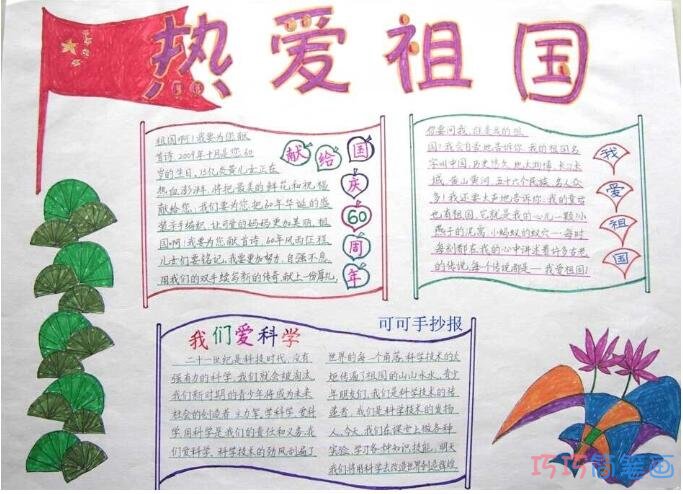 热爱祖国
祖国啊!我要为您献
首诗.2009年十月是您60
岁的生日,13亿炎黄儿女正在
热血澎湃,将把最美的鲜花和祝福
献给您,我们要为您把60年华诞的盛
装亲手编织,让可爱的妈妈更加美丽,祖
国啊!我要为您献首诗,60年风雨征程,
儿女们要铭记,我要更加努力,自强不息,
用我们的双手续写新的传奇,献上一份厚礼,
献给国庆60周年
你要问我,谁是我的祖
国!我会自豪地告诉你,我的祖国名
字叫中国,历史悠久,地大物博,长江长
城,黄山黄河,五十六个民族,名人众
多!我还要大声地告诉你,我的童话
也有祖国,它就是我的心儿一颗!小
燕子的泥窝,小蚂蚁的蚁穴一每时
每刻都在我的心中讲述着许多古老
的传说,每个传说都是一我爱祖国!
我爱祖国
我们爱科学
可可手抄报
二十一世纪是科技时代,没有
强有力的科学,我们就会被淘汰,
我们新时期的青少年将成为未来
社会的创造者主力军,学科学,爱科
学,用科学是我们的责任和义务,我
们爱科学,科学技术的劲风刮遍了
世界的每一个角落,科学技术的火
炬传遍了祖国的山山水水,青少
年朋友们,我们是科学技术的接
盖者,我们是科学技术的发扬
人,今天,我们在课堂上做各种
实验,学习各种知识技能,明天
我们将用科学去改造世界创造辉煌
巧巧简笔画